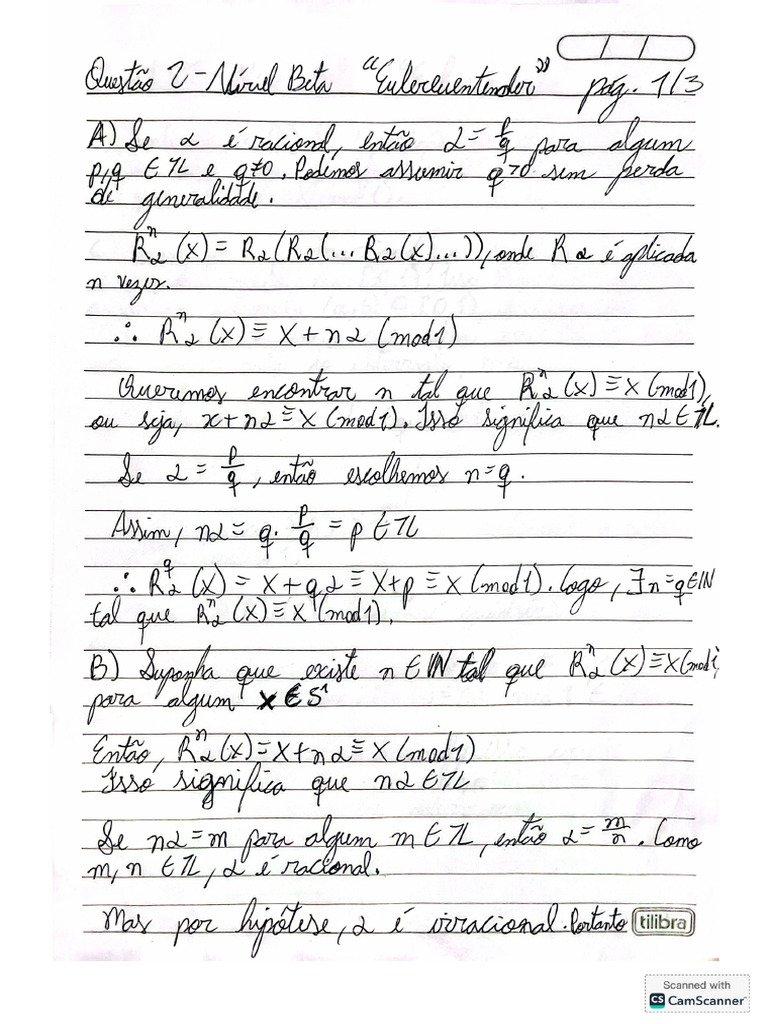 Questão 2 - Nível Beta "Eulercuentender" pág. 1/3
A) Se α é racional, então α = p/q para algum
p,q ∈ ℤ e q≠0. Podemos assumir q>0 sem perda
de generalidade.
Rα^n (x) = Rα(Rα(... Rα(x)...)), onde Rα é aplicada
n vezes.
∴ Rα^n (x) ≡ x + nα (mod 1)
Queremos encontrar n tal que Rα^n (x) ≡ x (mod 1),
ou seja, x + nα ≡ x (mod 1). Isso significa que nα ∈ ℤ.
Se α = p/q, então escolhemos n = q.
Assim, nα = q · p/q = p ∈ ℤ
∴ Rα^q (x) = x + q α ≡ x + p ≡ x (mod 1). Logo, ∃ n = q ∈ ℕ
tal que Rα^n (x) ≡ x (mod 1).
B) Suponha que existe n ∈ ℕ tal que Rα^n (x) ≡ x (mod 1
para algum x ∈ S¹
Então, Rα^n (x) = x + nα ≡ x (mod 1)
Isso significa que nα ∈ ℤ
Se nα = m para algum m ∈ ℤ, então α = m/n. Como
m, n ∈ ℤ, α é racional.
Mas por hipótese, α é irracional. Portanto
tilibra
Scanned with
CS CamScanner